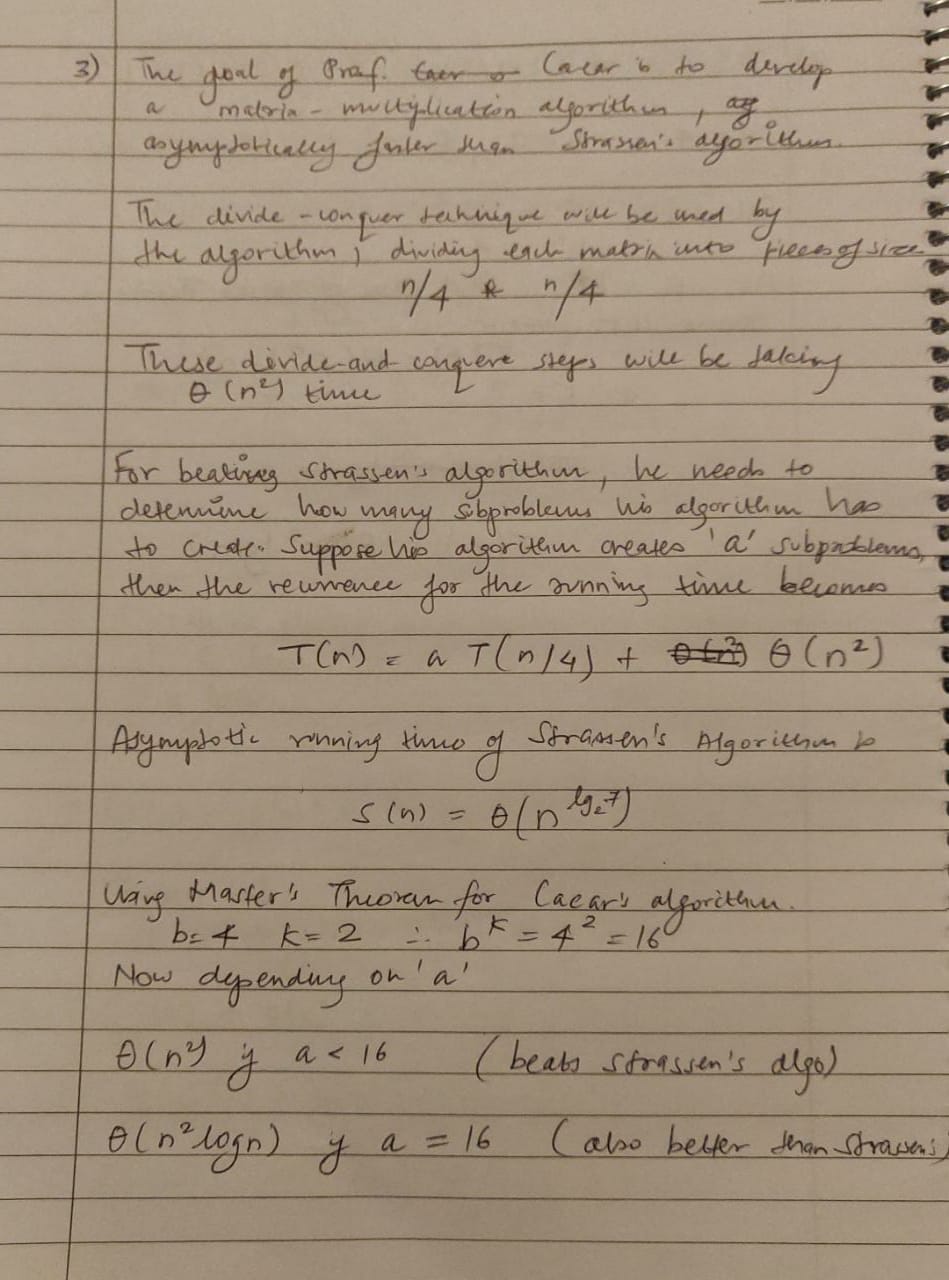 3) The goal of Prof. Caesar is to develop
a matrix - multiplication algorithm,
asymptotically faster than Strassen's algorithm.
The divide - conquer technique will be used by
the algorithm, dividing each matrix into pieces of size
n/4 * n/4
These divide-and-conquere steps will be taking
θ(n²) time
For beating Strassen's algorithm, he needs to
determine how many subproblems his algorithm has
to create. Suppose his algorithm creates 'a' subproblems,
then the recurrence for the running time becomes
T(n) = a T(n/4) + θ(n²)
Asymptotic running time of Strassen's Algorithm is
S(n) = θ(n^lg₂7)
Using Master's Theorem for Caesar's algorithm.
b=4 k=2 ∴ b^k = 4² = 16
Now depending on 'a'
θ(n²) if a < 16 (beats Strassen's algo)
θ(n²logn) if a = 16 (also better than Strassen's)